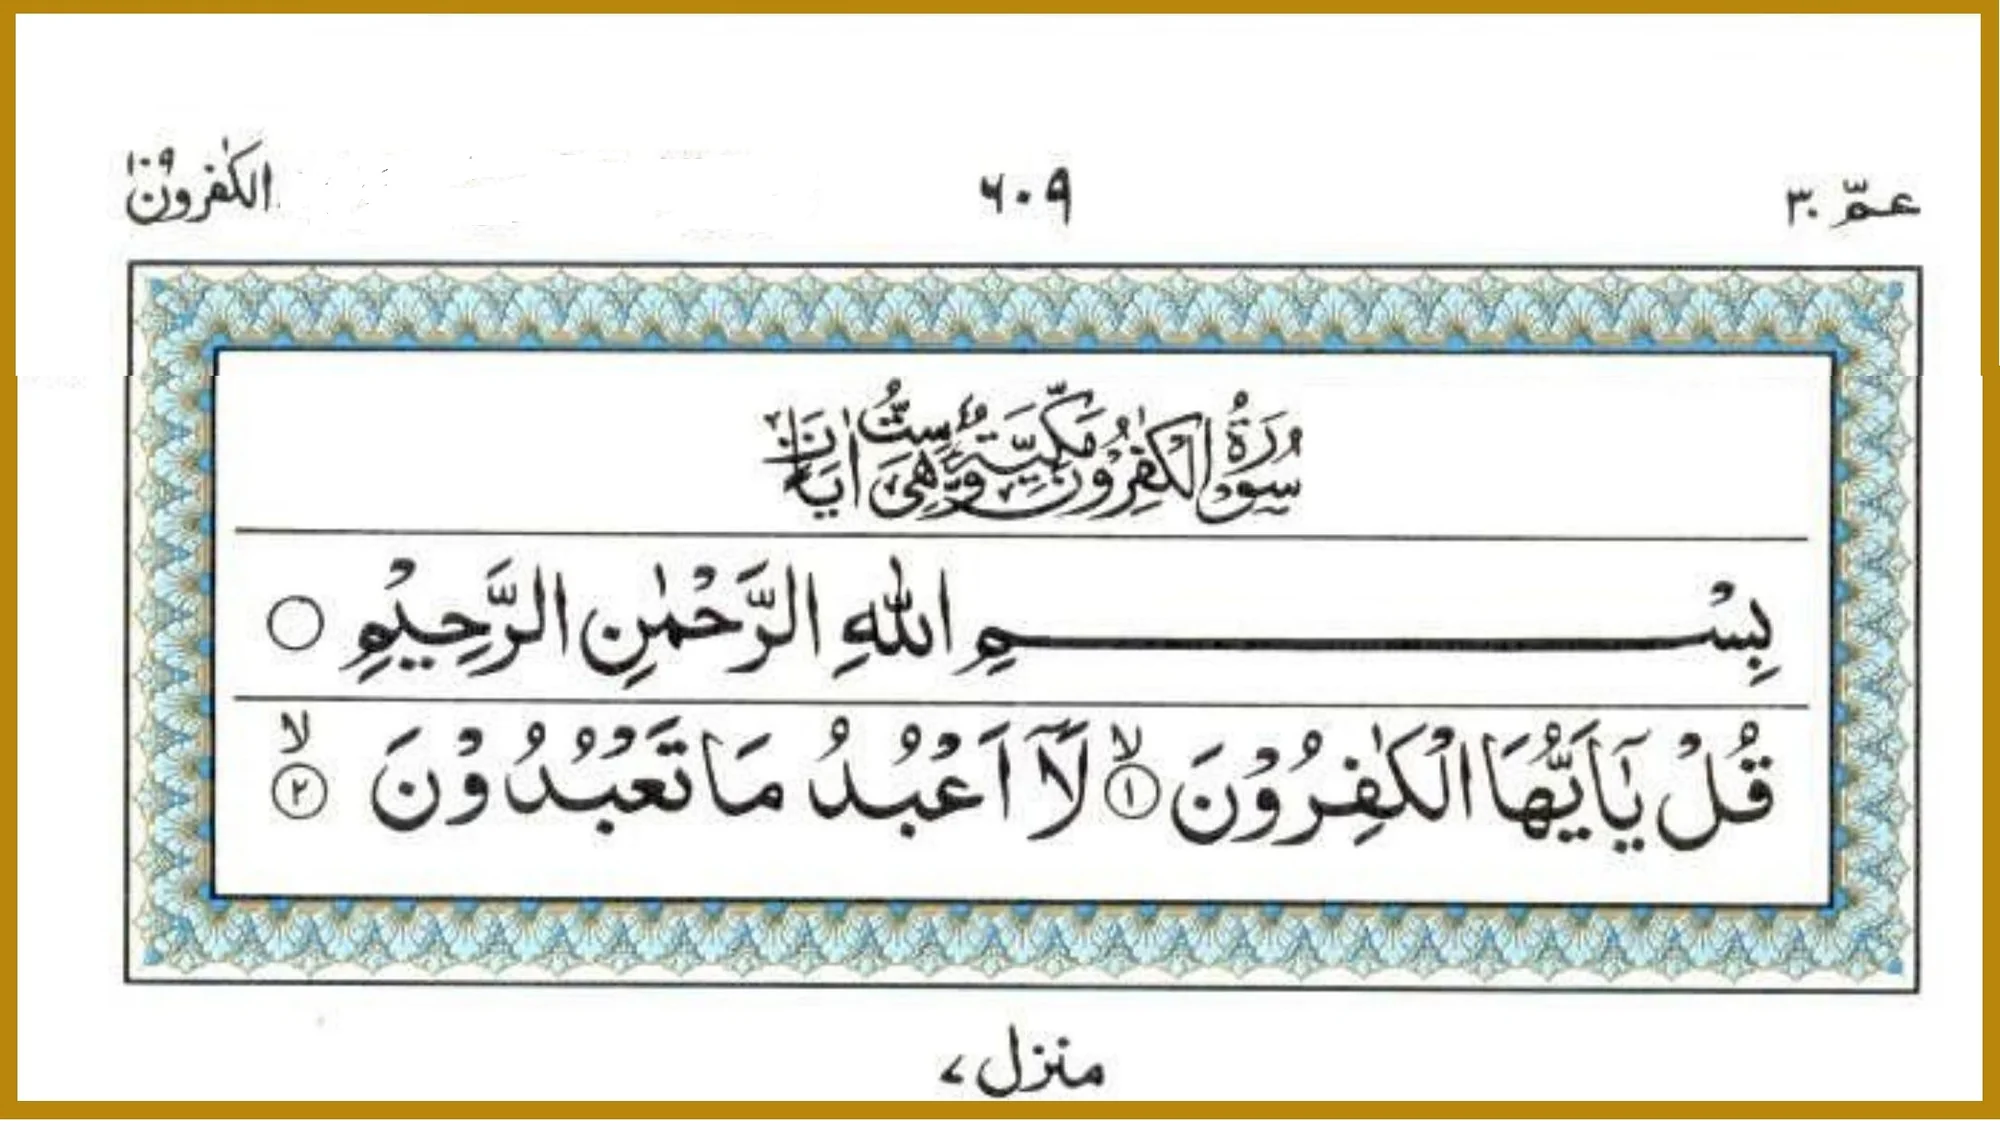 عمّ ٣٠ ٦٠٩ الكٰفرون ١٠٩
سُوْرَةُ الْكٰفِرُوْنَ مَكِّيَّةٌ وَّهِىَ سِتُّ اٰيَاتٍ
بِسْمِ اللهِ الرَّحْمٰنِ الرَّحِيْمِ ○
قُلْ يٰٓاَيُّهَا الْكٰفِرُوْنَ ۙ﴿١﴾ لَآ اَعْبُدُ مَا تَعْبُدُوْنَ ۙ﴿٢﴾
منزل ٧